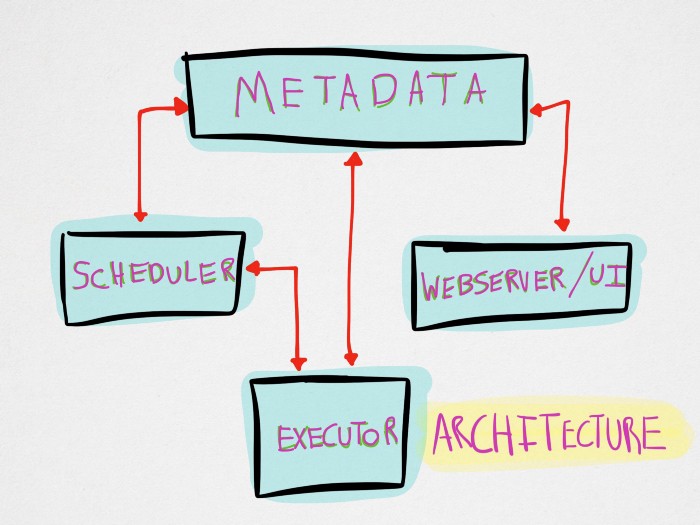 METADATA
SCHEDULER
WEBSERVER/UI
EXECUTOR
ARCHITECTURE